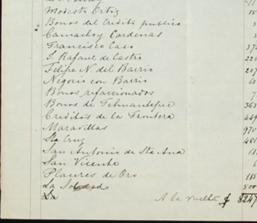 Modesto Ortiz
Bonos del Crédito público
Camacho y Cardenas
Francisco Caso
S. Rafael de Castro
Felipe N. del Barrio
Negocio con Barrio
Bonos refaccionados
Bonos de Tehuantepec
Creditos de la Frontera
Maravillas
Sta Cruz
San Antonio de Sta Ana
San Vicente
Placeres de Oro
La Soledad
La
A la vuelta $